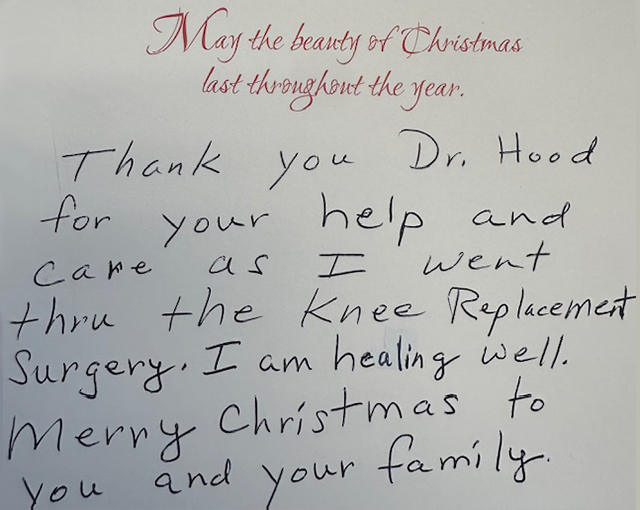 May the beauty of Christmas
last throughout the year.
Thank you Dr. Hood
for your help and
care as I went
thru the Knee Replacement
Surgery. I am healing well.
Merry Christmas to
you and your family.